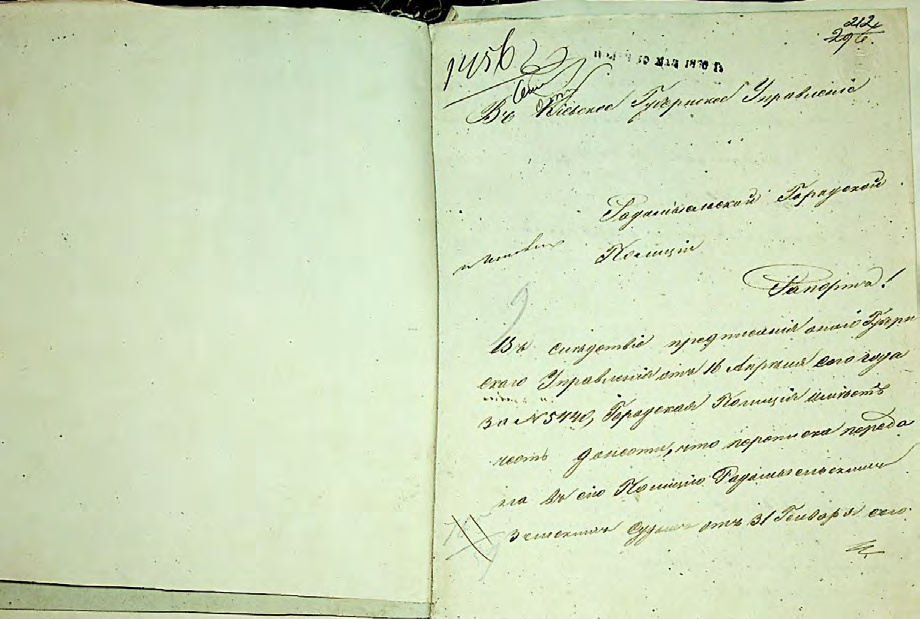 212
296.
1456
Въ Кіевское Губернское Управленіе
Радомысльской Городской
Полиціи
Рапортъ!
Въ следствіе предписанія онаго Губерн
скаго Управленія отъ 16 Апреля сего года
за № 5440, Городская Полиція имѣетъ
честь донести, что переписка переда
на въ сію Полицію Радомысльскимъ
Земскимъ Судомъ отъ 31 Генваря сего